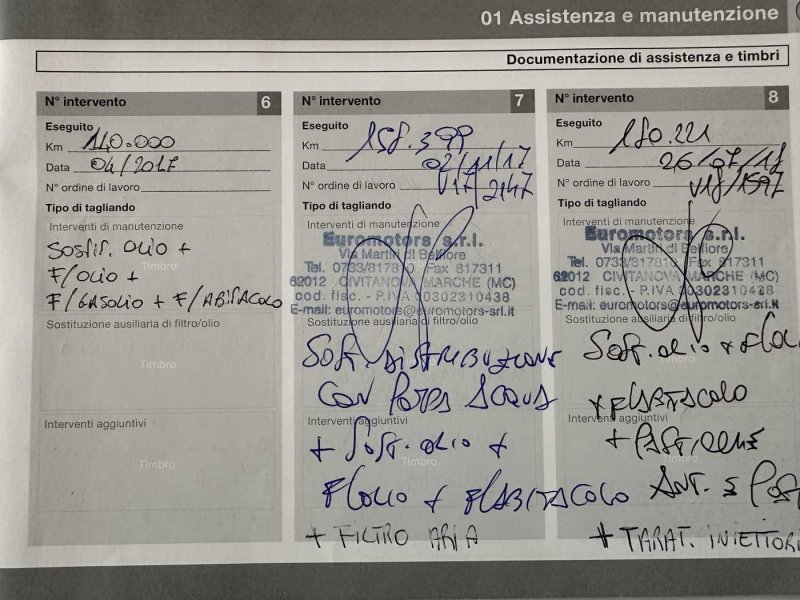 01 Assistenza e manutenzione
Documentazione di assistenza e timbri
N° intervento 6
Eseguito
Km 140.000
Data 04/2017
N° ordine di lavoro
Tipo di tagliando
Interventi di manutenzione
SOSTIT. OLIO +
F/OLIO +
Timbro
F/GASOLIO + F/ABITACOLO
Sostituzione ausiliaria di filtro/olio
Timbro
Interventi aggiuntivi
Timbro
N° intervento 7
Eseguito
Km 158.399
Data 02/11/17
N° ordine di lavoro V17/2147
Tipo di tagliando
Interventi di manutenzione
Euromotors s.r.l.
Via Martiri di Belfiore
Tel. 0733/817810 Fax 817311
62012 CIVITANOVA MARCHE (MC)
cod. fisc. - P.IVA 00302310438
E-mail: euromotors@euromotors-srl.it
Sostituzione ausiliaria di filtro/olio
SOST. DISTRIBUZIONE
CON POMPA ACQUA
Interventi aggiuntivi
+ SOST. OLIO +
Timbro
F/OLIO + F/ABITACOLO
+ FILTRO ARIA
N° intervento 8
Eseguito
Km 180.221
Data 26/07/18
N° ordine di lavoro V18/1597
Tipo di tagliando
Interventi di manutenzione
Euromotors s.r.l.
Via Martiri di Belfiore
Tel. 0733/817810 Fax 817311
62012 CIVITANOVA MARCHE (MC)
cod. fisc. - P.IVA 00302310438
E-mail: euromotors@euromotors-srl.it
Sostituzione ausiliaria di filtro/olio
SOST. OLIO +
+ F/ABITACOLO
Interventi aggiuntivi
+ PASTICCHE
ANT. E POST
+ TARAT. INIETTORI